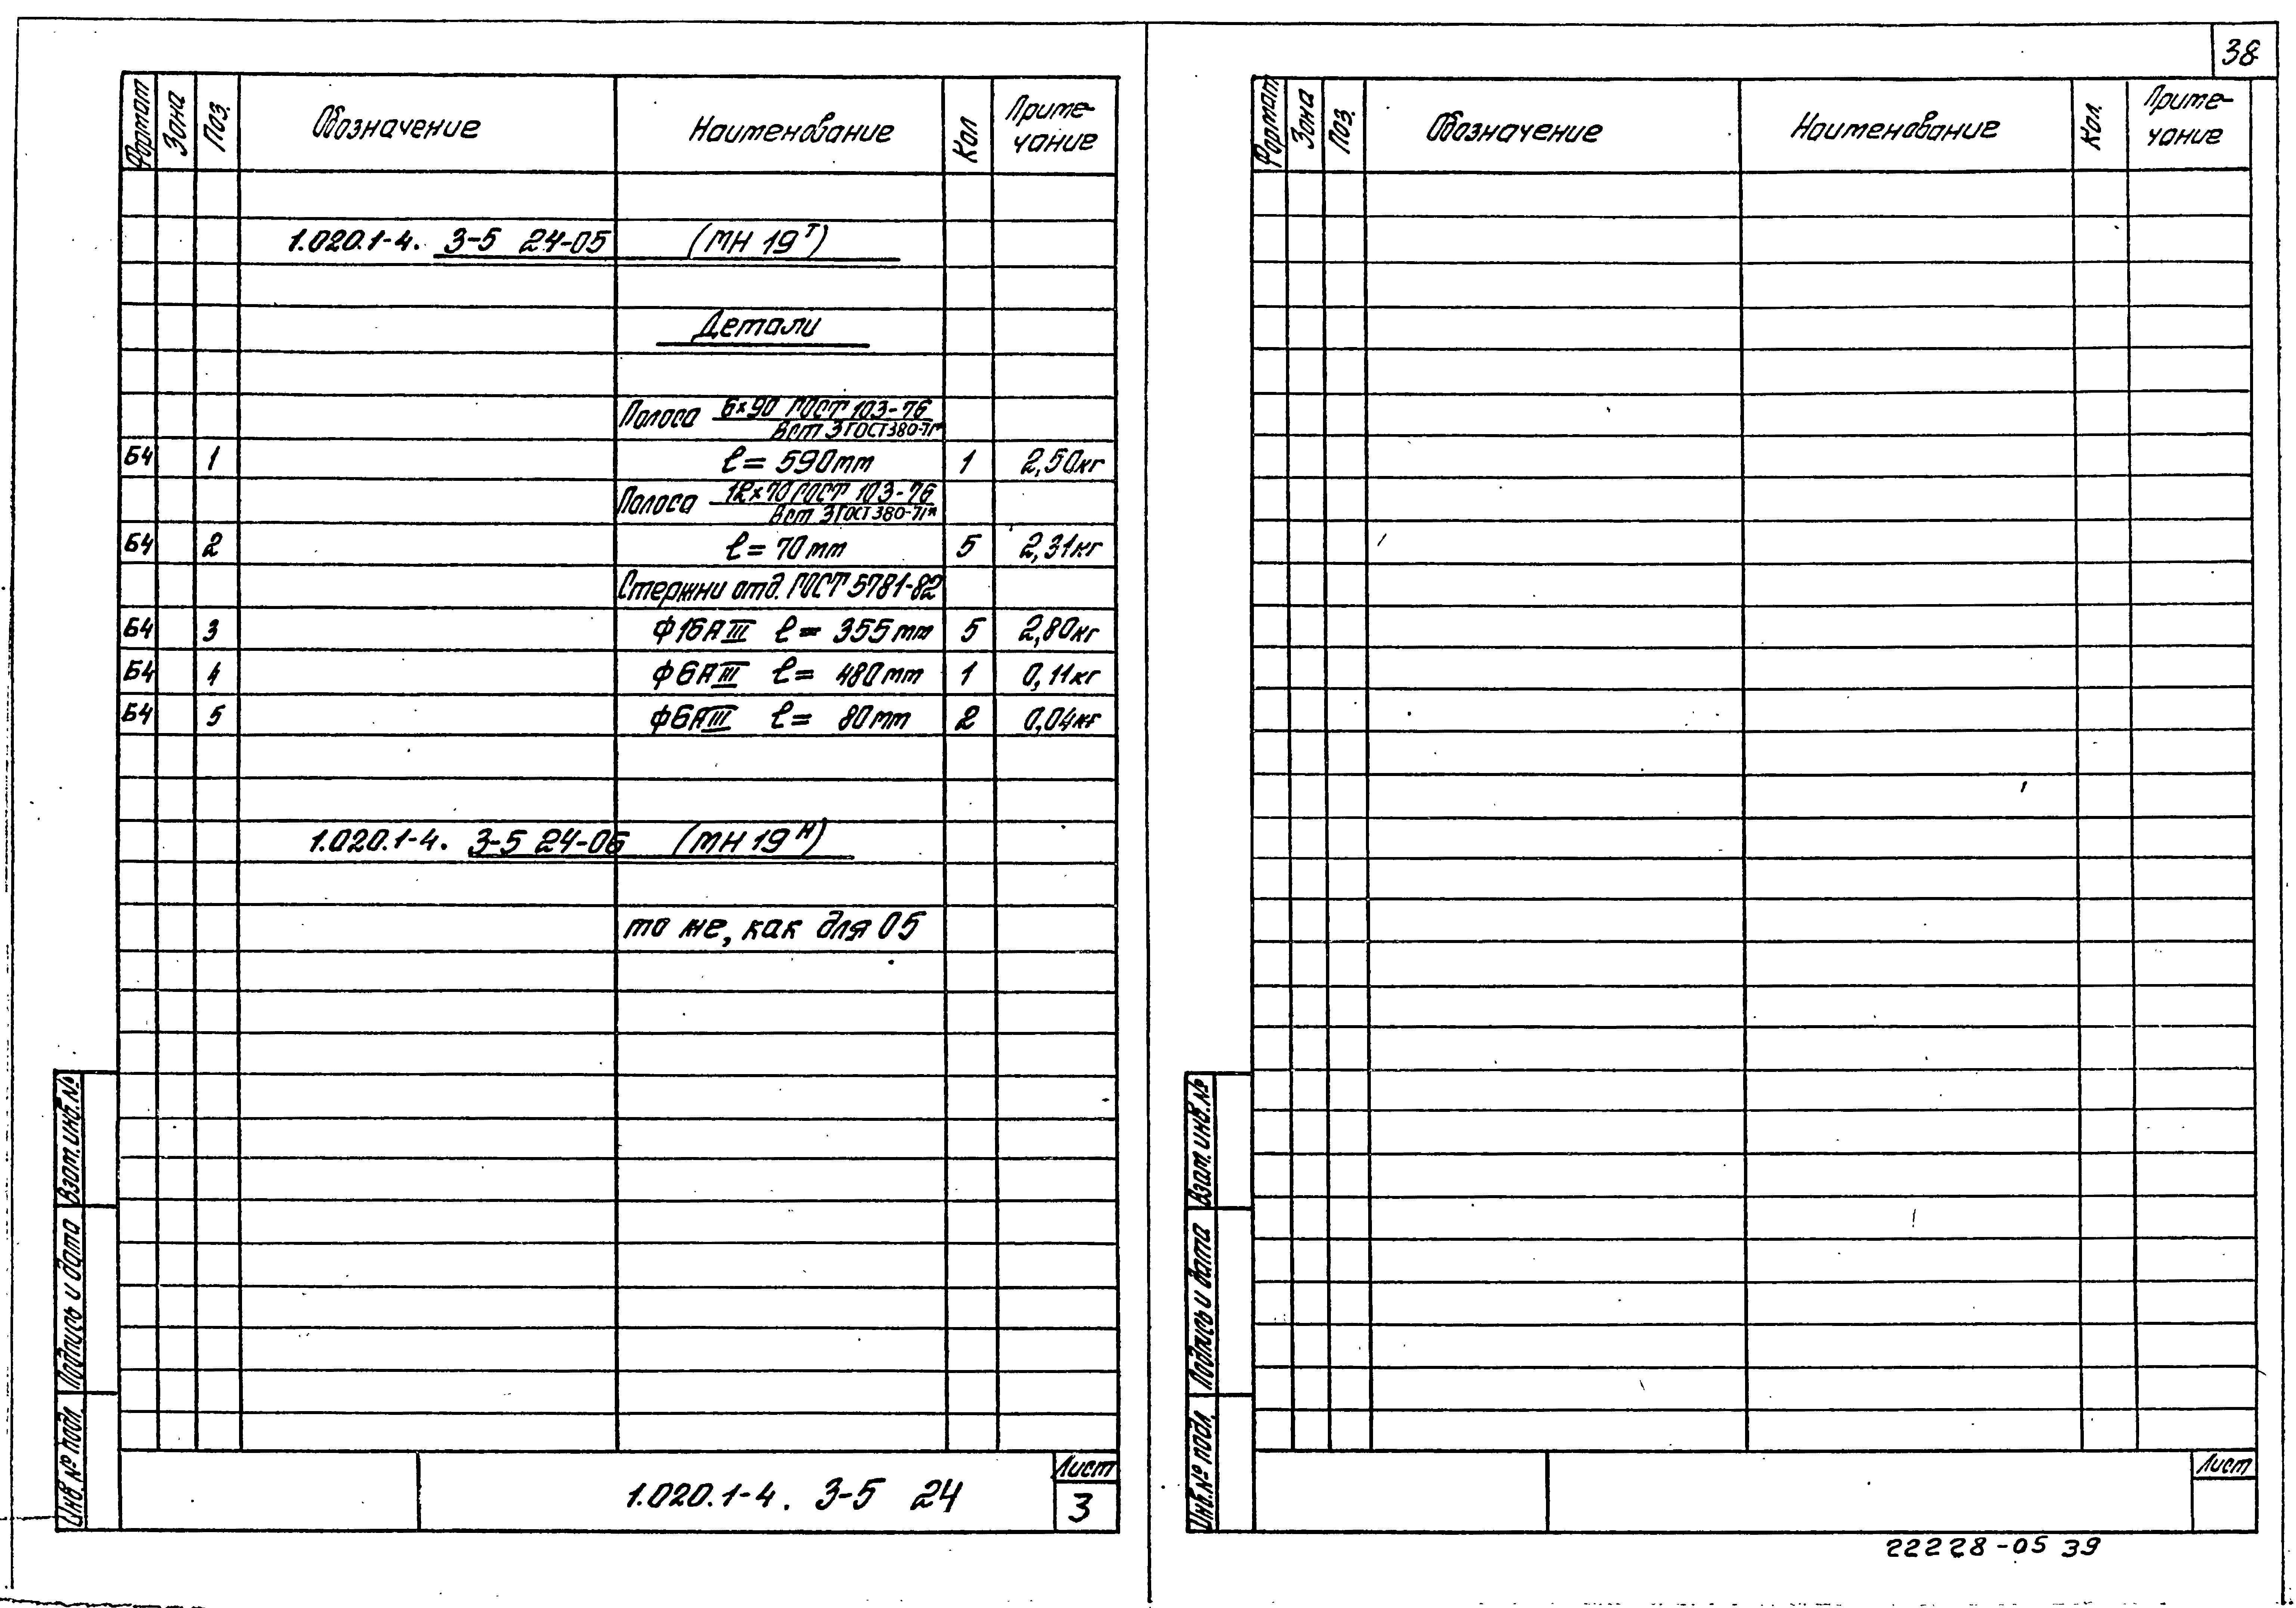 38
Формат Зона Поз. Обозначение Наименование Кол Приме-чание
1.020.1-4. 3-5 24-05 (МН 19Т)
Детали
Полоса 6×90 ГОСТ 103-76
Вст 3 ГОСТ 380-71*
Б4 1 ℓ= 590мм 1 2,50кг
Полоса 12×70 ГОСТ 103-76
Вст 3 ГОСТ 380-71*
Б4 2 ℓ= 70мм 5 2,31кг
Стержни отд. ГОСТ 5781-82
Б4 3 ф16АIII ℓ= 355мм 5 2,80кг
Б4 4 ф6АIII ℓ= 480мм 1 0,11кг
Б4 5 ф6АIII ℓ= 80мм 2 0,04кг
1.020.1-4. 3-5 24-06 (МН 19Н)
то же, как для 05
Взам. инв. №
Подпись и дата
Инв. № подл.
1.020.1-4. 3-5 24
Лист
3
Формат Зона Поз. Обозначение Наименование Кол. Приме-чание
Взам. инв. №
Подпись и дата
Инв. № подл.
Лист
22228-05 39